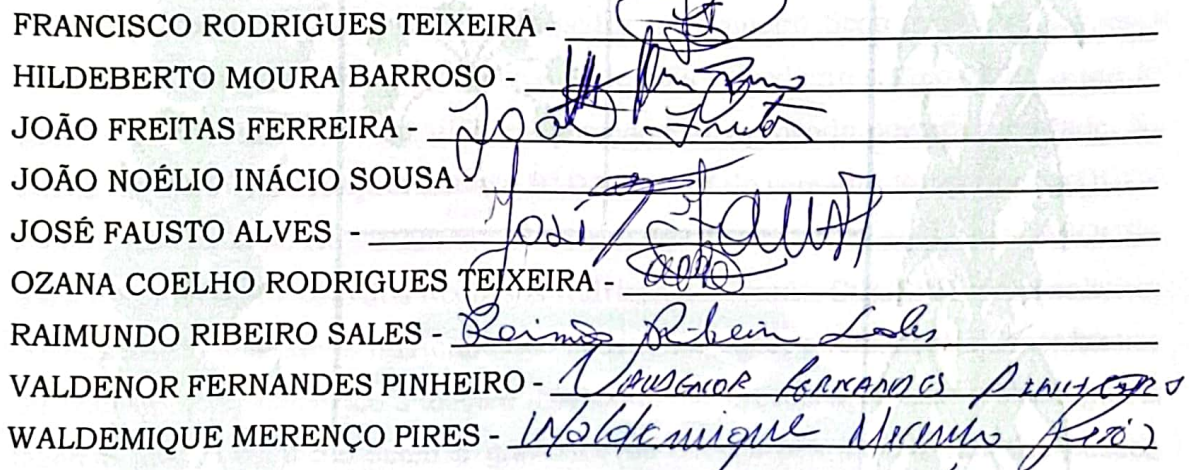 FRANCISCO RODRIGUES TEIXEIRA -
HILDEBERTO MOURA BARROSO -
JOÃO FREITAS FERREIRA - João Freitas
JOÃO NOÉLIO INÁCIO SOUSA -
JOSÉ FAUSTO ALVES - José Faust
OZANA COELHO RODRIGUES TEIXEIRA -
RAIMUNDO RIBEIRO SALES - Raimdo Ribeiro Sales
VALDENOR FERNANDES PINHEIRO - VALDENOR FERNANDES PINHEIRO
WALDEMIQUE MERENÇO PIRES - Waldemique Merenço Pires